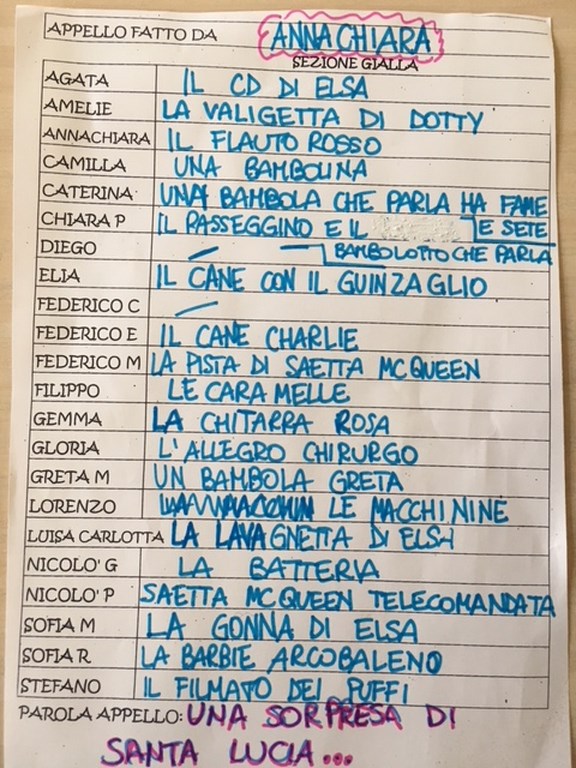 APPELLO FATTO DA ANNACHIARA
SEZIONE GIALLA
AGATA IL CD DI ELSA
AMELIE LA VALIGETTA DI DOTTY
ANNACHIARA IL FLAUTO ROSSO
CAMILLA UNA BAMBOLINA
CATERINA UNA BAMBOLA CHE PARLA HA FAME
E SETE
CHIARA P IL PASSEGGINO E IL
BAMBOLOTTO CHE PARLA
DIEGO —
ELIA IL CANE CON IL GUINZAGLIO
FEDERICO C —
FEDERICO E IL CANE CHARLIE
FEDERICO M LA PISTA DI SAETTA MCQUEEN
FILIPPO LE CARAMELLE
GEMMA LA CHITARRA ROSA
GLORIA L'ALLEGRO CHIRURGO
GRETA M UN BAMBOLA GRETA
LORENZO LE MACCHININE
LUISA CARLOTTA LA LAVAGNETTA DI ELSA
NICOLO' G LA BATTERIA
NICOLO' P SAETTA MCQUEEN TELECOMANDATA
SOFIA M LA GONNA DI ELSA
SOFIA R LA BARBIE ARCOBALENO
STEFANO IL FILMATO DEI PUFFI
PAROLA APPELLO: UNA SORPRESA DI
SANTA LUCIA...